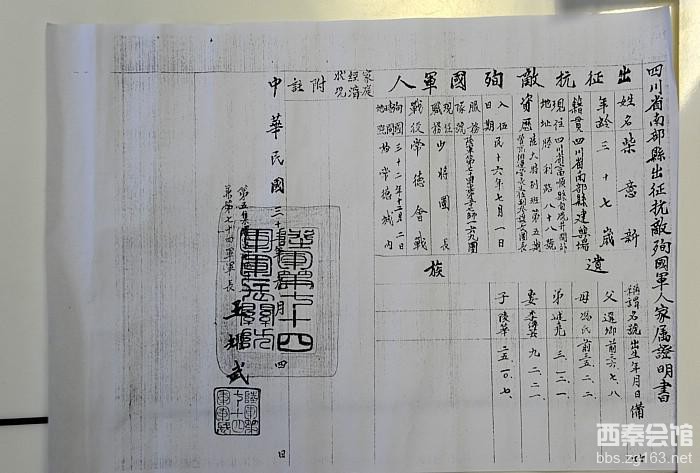 四川省南部縣出征抗敵殉國軍人家屬證明書
出征抗敵殉國軍人
姓名 柴意新
年齡 三十七歲
籍貫 四川省南部縣建興場
現住地址 四川省富順縣自流井關外勝利路八十八號
資歷 陸大特別班第五期
入伍日期 民十六年七月一日
服務隊號 陸軍第七十四軍第五十七師一六九團
現任職務 少將團長
戰役 常德會戰
殉國時間地點 三十二年十二月二日於常德城內
遺族
稱謂 名號 出生年月日 備
父 選鄉 前二六、七、八
母 馮氏 前三五、二、二
弟 三、一、二、一
妻 李 九、二、二
子 陵華 二五、一〇、七、
家庭經濟狀況
附註
中華民國三十 年 月 四 日
第五集團
兼第七十四軍軍長 王 武
陸軍第七十四軍
西秦会馆
bbs.zg163.net